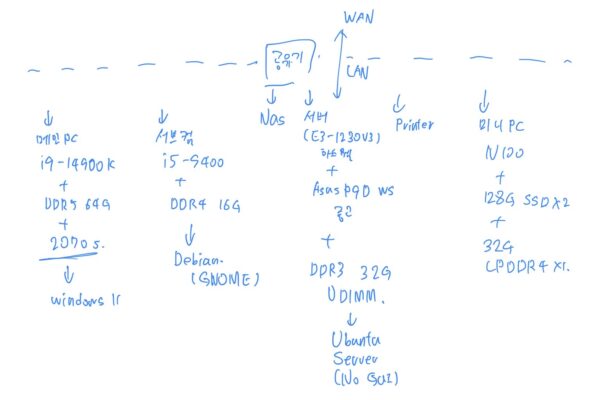 WAN
공유기
LAN
메인PC
i9-14900K
+
DDR5 64G
+
2070s.
windows 11
서브컴
i5-9400
+
DDR4 16G
Debian.
(GNOME)
Nas
서버
(E3-1230V3)
하스웰
+
Asus P9D WS
+
DDR3 32G
UDIMM.
Ubantu
Server
(No GUI)
Printer
미니PC
N100
+
128G SSD X2
+
32G
LPDDR4 X1.